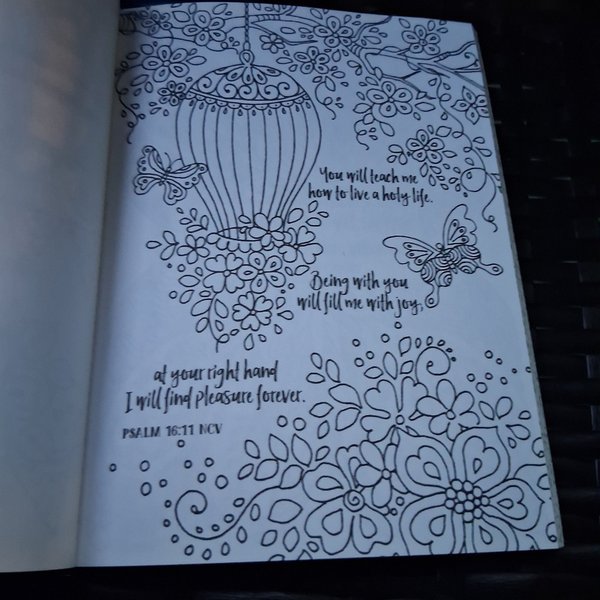 You will teach me
how to live a holy life.
Being with you
will fill me with joy;
at your right hand
I will find pleasure forever.
PSALM 16:11 NCV